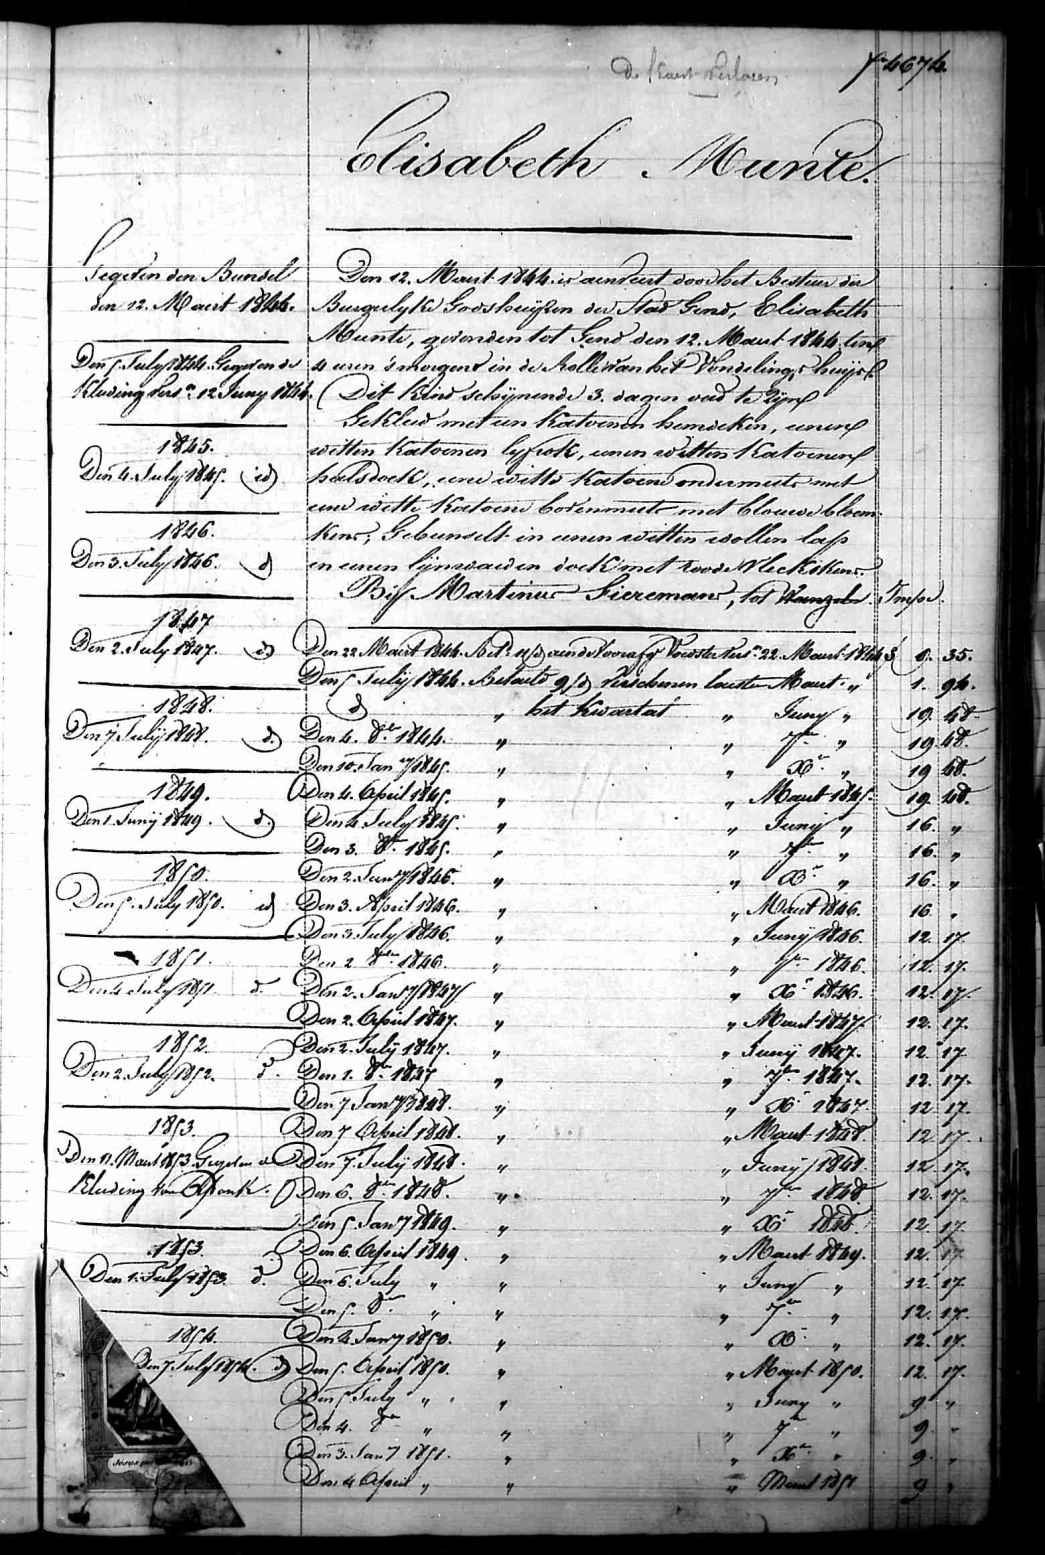 De Kaart verloren
Nr 4674.
Elisabeth Munte.
Gegeven den Bundel
den 12. Maart 1844.
Den 5 July 1844 Gegeven de
Kleeding vers.n 12 Juny 1844.
1845.
Den 4. July 1845. id
1846.
Den 3. July 1846. id
1847
Den 2. July 1847. id
1848.
Den 7 July 1848. id.
1849.
Den 1. Juny 1849. id.
1850.
Den 5. July 1850. id
1851.
Den 4 July 1851. id.
1852.
Den 2. July 1852. id.
1853.
Den 11. Maart 1853. Gegeven de
Kleeding van
1853.
Den 1. July 1853. id.
1854.
Den 7. July 1854. id
Den 12. Maart 1844. is aenveert door het Bestuer der
Burgerlyke Godshuijzen der Stad Gend, Elisabeth
Munte, gevonden tot Gend den 12. Maart 1844. ten
4 uren 's morgens in de Rolle van het Vondelings huijs.
Dit Kind schijnende 3. dagen oud te Zijn
Gekleed met een Katoenen hemdeken, eenen
witten Katoenen lyfrok, eenen witten Katoenen
halsdoek, eene witte Katoene ondermuts met
eene witte Katoene bovenmuts met blouwe bloem-
kens, Gebunselt in eenen witten wollen lap
en eenen lijnwaeden doek met roode Vleckskens.
Bij Martinus Siereman, tot Wanzele
Den 22 Maart 1844. Bet.d a/d aende Voorafg Voedster vers.n 22. Maart 1844 0. 35.
Den 5 July 1844. Betaeld a/d verschenen lasten Maart " 1. 94.
id " het Kwartael " Juny " 19. 48.
Den 4. 8bre 1844. " " 7bre " 19. 48.
Den 10. Jan.y 1845. " " Xbre " 19 48.
Den 4. April 1845. " " Maart 1845. 19. 48.
Den 4. July 1845. " " Juny " 16. "
Den 3. 8bre 1845. " " 7bre " 16. "
Den 2. Jan.y 1846. " " Xbre " 16. "
Den 3. April 1846. " " Maart 1846. 16 "
Den 3. July 1846. " " Juny 1846 12. 17.
Den 2 8bre 1846. " " 7bre 1846 12. 17.
Den 2. Jan.y 1847 " " Xbre 1846. 12. 17.
Den 2. April 1847. " " Maart 1847. 12. 17.
Den 2. July 1847. " " Juny 1847. 12. 17
Den 1. 8bre 1847 " " 7bre 1847. 12. 17.
Den 7 Jan.y 1848. " " Xbre 1847 12 17.
Den 7 April 1848. " " Maart 1848 12 17.
Den 7. July 1848. " " Juny 1848. 12. 17.
Den 6. 8bre 1848. " " 7bre 1848. 12. 17.
Den 5. Jan.y 1849. " " Xbre 1848. 12 17
Den 6. April 1849. " " Maart 1849. 12. 17
Den 6. July " " " Juny " 12. 17.
Den 5. 8bre " " " 7bre " 12. 17.
Den 4 Jan.y 1850. " " Xbre " 12. 17.
Den 5. April 1850. " " Maart 1850. 12. 17.
Den 5 July " " " Juny " 9 "
Den 4. 8bre " " " 7bre " 9. "
Den 3. Jan.y 1851. " " Xbre " 9. "
Den 4 April " " " Maart 1851 9 "